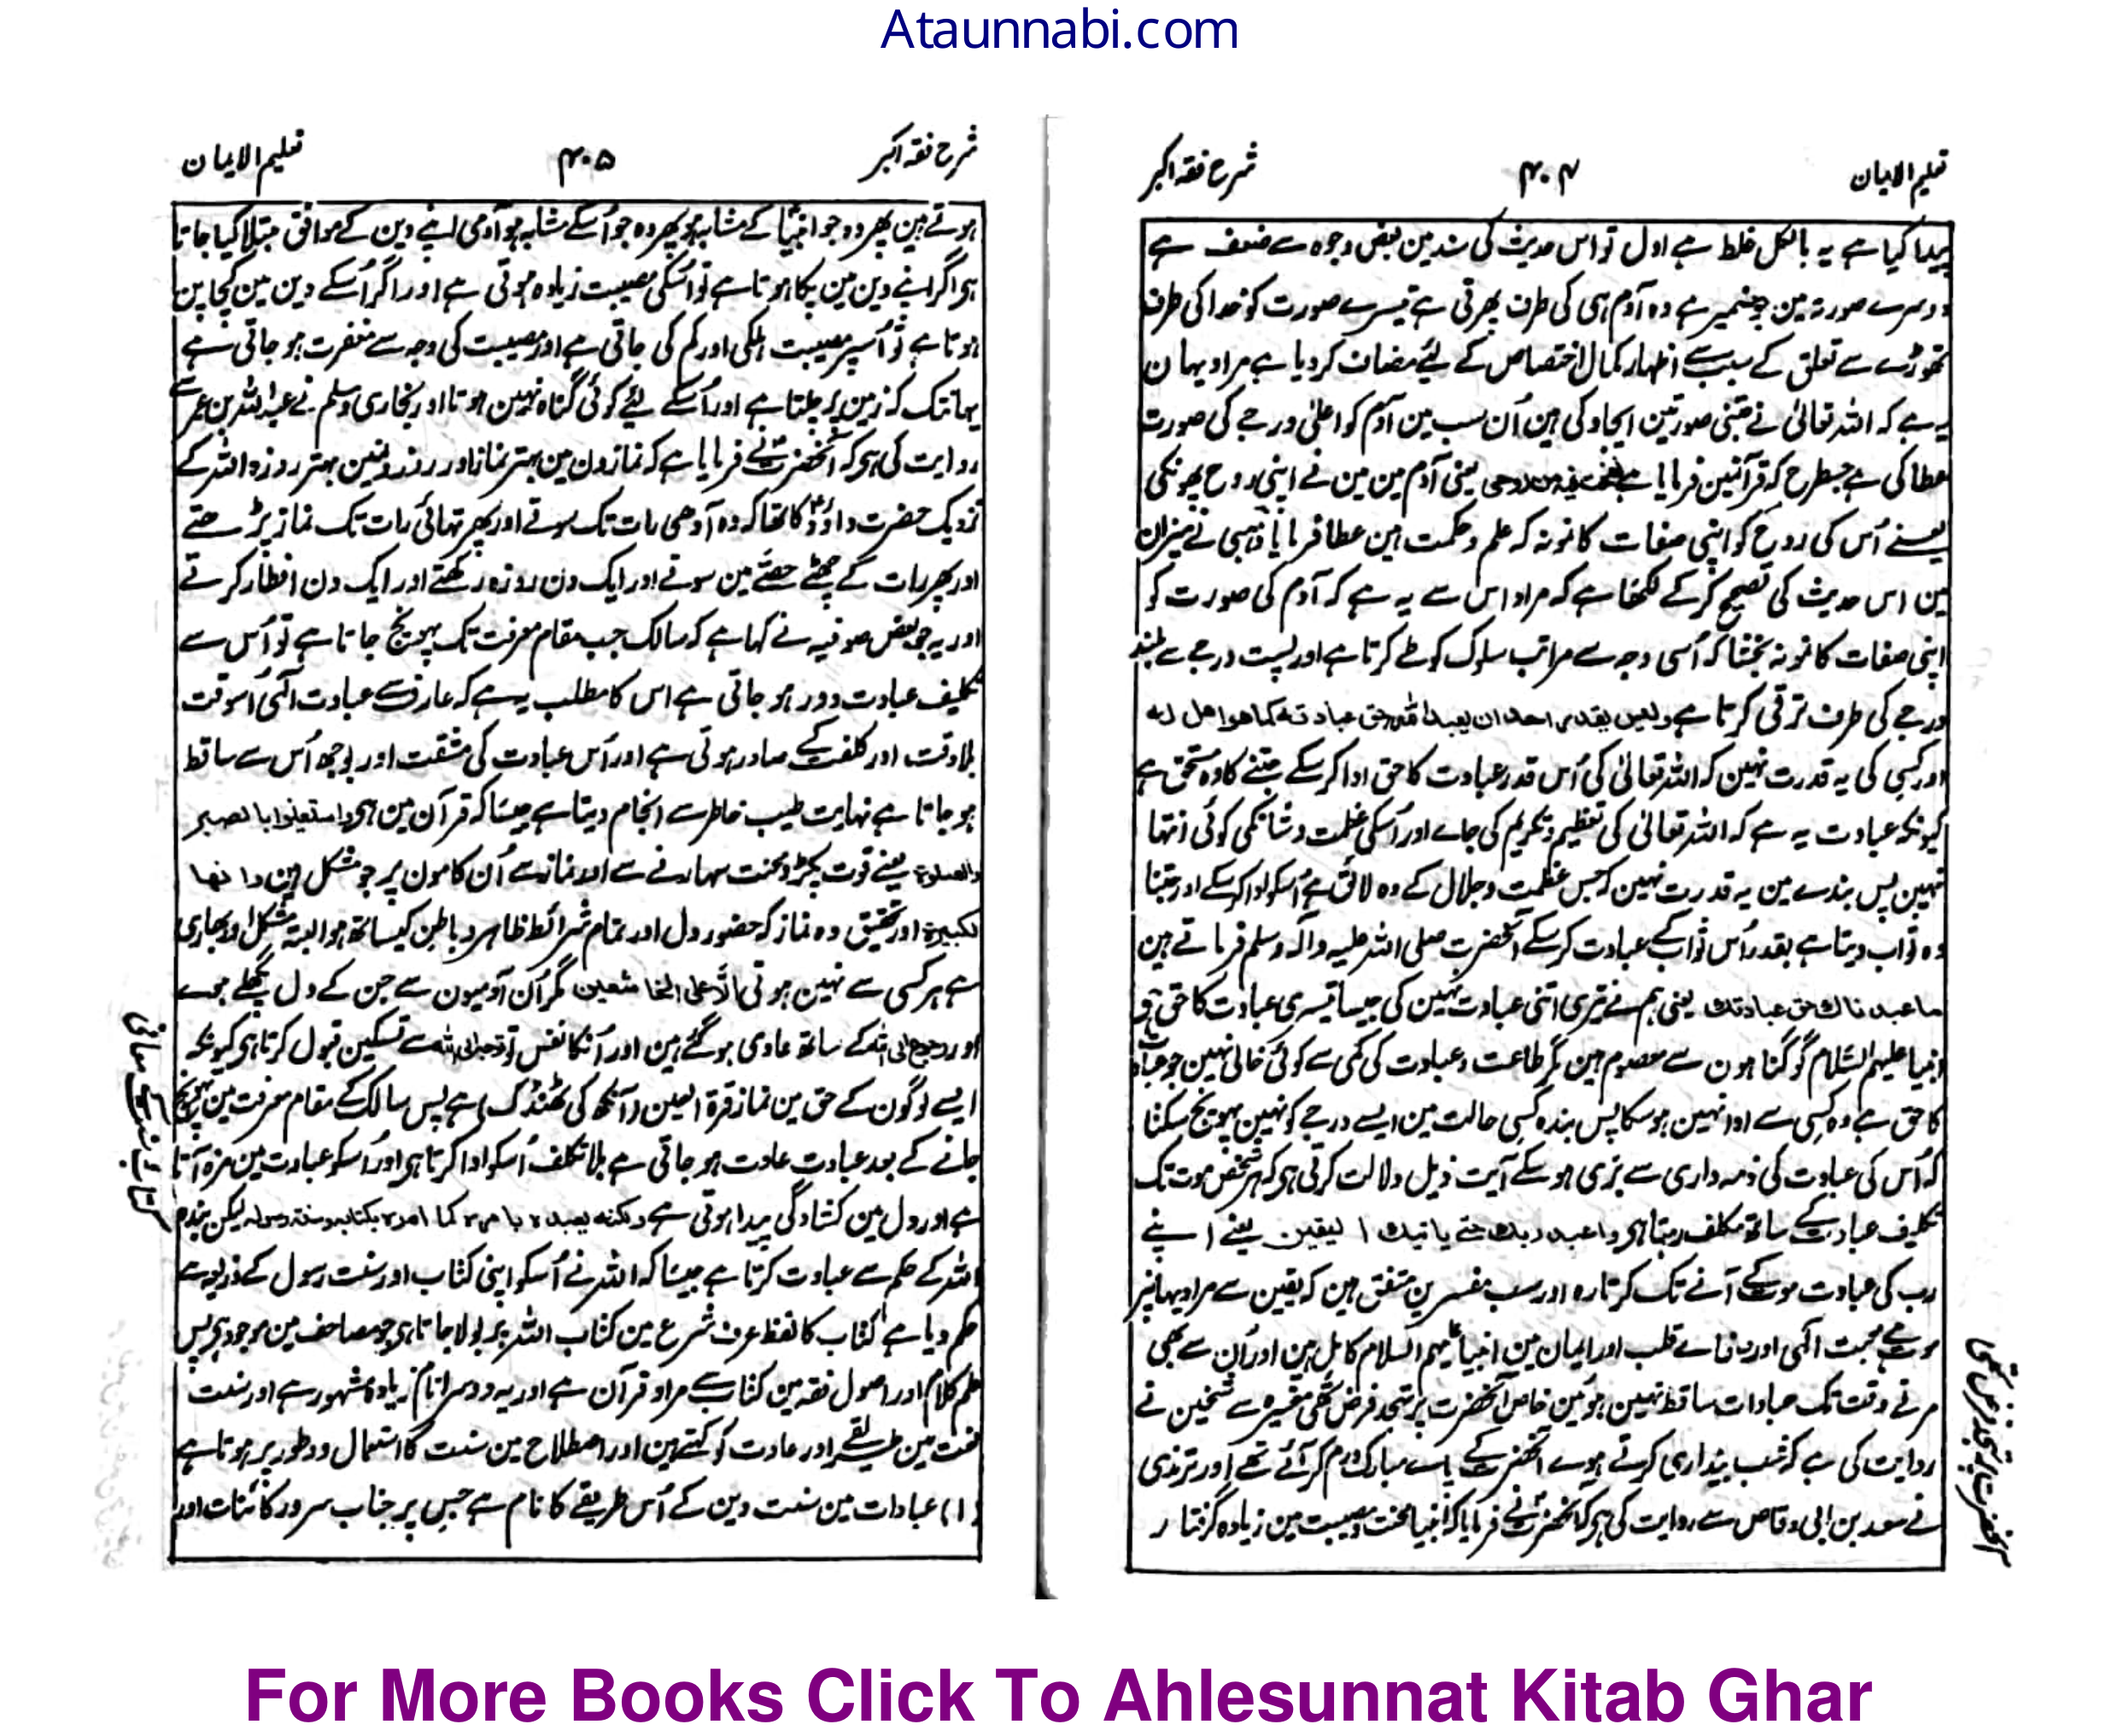 Ataunnabi.com
تعلیم الایمان
۴۰۴
شرح فقہ اکبر
پیدا کیا ہے یہ بالکل غلط ہے اول تو اس حدیث کی سند مین بعض وجوہ سے ضعف ہے
دوسرے صورتہ مین جو ضمیر ہے وہ آدم ہی کی طرف پھرتی ہے تیسرے صورت کو خدا کی طرف
تھوڑے سے تعلق کے سبب سے اظہار کمال اختصاص کے لئے مضاف کر دیا ہے مراد یہان
یہ ہے کہ اللہ تعالیٰ نے جتنی صورتین ایجاد کی ہین اُن سب مین آدم کو اعلیٰ درجے کی صورت
عطا کی ہے جسطرح کہ قرآنمین فرمایا ہے نفخت فیہ من روحی یعنی آدم مین مین نے اپنی روح پھونکی
یعنے اُس کی روح کو اپنی صفات کا نمونہ کہ علم و حکمت ہین عطا فرمایا ذہبی نے میزان
مین اس حدیث کی تصحیح کرکے لکھا ہے کہ مراد اس سے یہ ہے کہ آدم کی صورت کو
اپنی صفات کا نمونہ بخشا کہ اُسی وجہ سے مراتب سلوک کو طے کرتا ہے اور پست درجے سے بلند
درجے کی طرف ترقی کرتا ہے ولیس یقدر احد ان یعبد اللہ حق عبادتہ کما ھو اھل لہ
اور کسی کی یہ قدرت نہین کہ اللہ تعالیٰ کی اُس قدر عبادت کا حق ادا کر سکے جتنے کا وہ مستحق ہے
کیونکہ عبادت یہ ہے کہ اللہ تعالیٰ کی تعظیم و تکریم کی جاے اور اُسکی عظمت و شان کی کوئی انتہا
نہین پس بندے مین یہ قدرت نہین کہ جس عظمت و جلال کے وہ لائق ہے اُسکو ادا کر سکے اور جتنا
وہ ثواب دیتا ہے بقدر اُس ثواب کے عبادت کر سکے آنحضرت صلی اللہ علیہ وآلہ وسلم فرماتے ہین
ما عبدناک حق عبادتک یعنی ہم نے تیری اتنی عبادت نہین کی جیسا تیری عبادت کا حق ہے
انبیا علیہم السلام گو گناہون سے معصوم ہین مگر طاعت و عبادت کی کمی سے کوئی خالی نہین جو عبادت
کا حق ہے وہ کسی سے ادا نہین ہو سکا پس بندہ کسی حالت مین ایسے درجے کو نہین پہونچ سکتا
کہ اُس کی عبادت کی ذمہ داری سے بری ہو سکے آیت ذیل دلالت کرتی ہی کہ ہر شخص موت تک
تکلیف عبادت کے ساتھ مکلف رہتا ہی واعبد ربک حتے یاتیک الیقین یعنے اپنے
رب کی عبادت موت کے آنے تک کرتا رہ اور سب مفسرین متفق ہین کہ یقین سے مراد یہانپر
موت ہے محبت الٰہی اور صفاے قلب اور ایمان مین انبیا علیہم السلام کامل ہین اور اُن سے بھی
مرتے وقت تک عبادات ساقط نہین ہوئین خاص آنحضرت پر تہجد فرض تھی مغیرہ سے شیخین نے
روایت کی ہے کہ شب بیداری کرتے ہوے آنحضرت کے پاے مبارک ورم کر آئے تھے اور ترمذی
نے سعد بن ابی وقاص سے روایت کی ہی کہ آنحضرت نے فرمایا کہ انبیا محنت و مصیبت مین زیادہ گرفتار
آنحضرت پر تہجد فرض تھی
شرح فقہ اکبر
۴۰۵
تعلیم الایمان
ہوتے ہین پھر وہ جو انبیا کے مشابہ ہو پھر وہ جو اُسکے مشابہ ہو آدمی اپنے دین کے موافق مبتلا کیا جاتا
ہی اگر اپنے دین مین پکا ہوتا ہے تو اُسکی مصیبت زیادہ ہوتی ہے اور اگر اُسکے دین مین کچا پن
ہوتا ہے تو اُسپر مصیبت ہلکی اور کم کی جاتی ہے اور مصیبت کی وجہ سے مغفرت ہو جاتی ہے
یہانتک کہ زمین پر چلتا ہے اور اُسکے لئے کوئی گناہ نہین ہوتا اور بخاری و مسلم نے عبد اللہ بن عمر سے
روایت کی ہی کہ آنحضرت نے فرمایا ہے کہ نمازون مین بہتر نماز اور روزونمین بہتر روزہ اللہ کے
نزدیک حضرت داؤد کا تھا کہ وہ آدھی رات تک سوتے اور پھر تہائی رات تک نماز پڑھتے
اور پھر رات کے چھٹے حصے مین سوتے اور ایک دن روزہ رکھتے اور ایک دن افطار کرتے
اور یہ جو بعض صوفیہ نے کہا ہے کہ سالک جب مقام معرفت تک پہونچ جاتا ہے تو اُس سے
تکلیف عبادت دور ہو جاتی ہے اس کا مطلب یہ ہے کہ عارف سے عبادت الٰہی اسوقت
بلا دقت اور کلفت کے صادر ہوتی ہے اور اُس عبادت کی مشقت اور بوجھ اُس سے ساقط
ہو جاتا ہے نہایت طیب خاطر سے انجام دیتا ہے جیسا کہ قرآن مین ہی واستعینوا بالصبر
والصلوۃ یعنے قوت پکڑو محنت سہارنے سے اور نماز سے اُن کامون پر جو مشکل ہین وانھا
لکبیرۃ اور تحقیق وہ نماز کہ حضور دل اور تمام شرائط ظاہر و باطن کیساتھ ہو البتہ مشکل اور بھاری
ہے ہر کسی سے نہین ہوتی الا علی الخاشعین مگر اُن آدمیون سے جن کے دل پگھلے ہوے
اور رجوع الی اللہ کے ساتھ عادی ہو گئے ہین اور اُنکا نفس توجہ الی اللہ سے تسکین قبول کرتا ہی کیونکہ
ایسے لوگون کے حق مین نماز قرۃ العین (آنکھ کی ٹھنڈک) ہے پس سالک کے مقام معرفت مین پہونچ
جانے کے بعد عبادت عادت ہو جاتی ہے بلا تکلف اُسکو ادا کرتا ہی اور اُسکو عبادت مین مزہ آتا
ہے اور دل مین کشادگی پیدا ہوتی ہے ولکنہ یعبدہ بامرہ کما امرہ بکتابہ وسنۃ رسولہ لیکن بندہ
اللہ کے حکم سے عبادت کرتا ہے جیسا کہ اللہ نے اُسکو اپنی کتاب اور سنت رسول کے ذریعہ سے
حکم دیا ہے کتاب کا لفظ عرف شرع مین کتاب اللہ پر بولا جاتا ہی جو مصاحف مین موجود ہی پس
علم کلام اور اصول فقہ مین کتاب سے مراد قرآن ہے اور یہ دوسرا نام زیادہ مشہور ہے اور سنت
لغت مین طریقے اور عادت کو کہتے ہین اور اصطلاح مین سنت کا استعمال دو طور پر ہوتا ہے
(۱) عبادات مین سنت دین کے اُس طریقے کا نام ہے جس پر جناب سرور کائنات اور
کتاب و سنت کے معانی
For More Books Click To Ahlesunnat Kitab Ghar